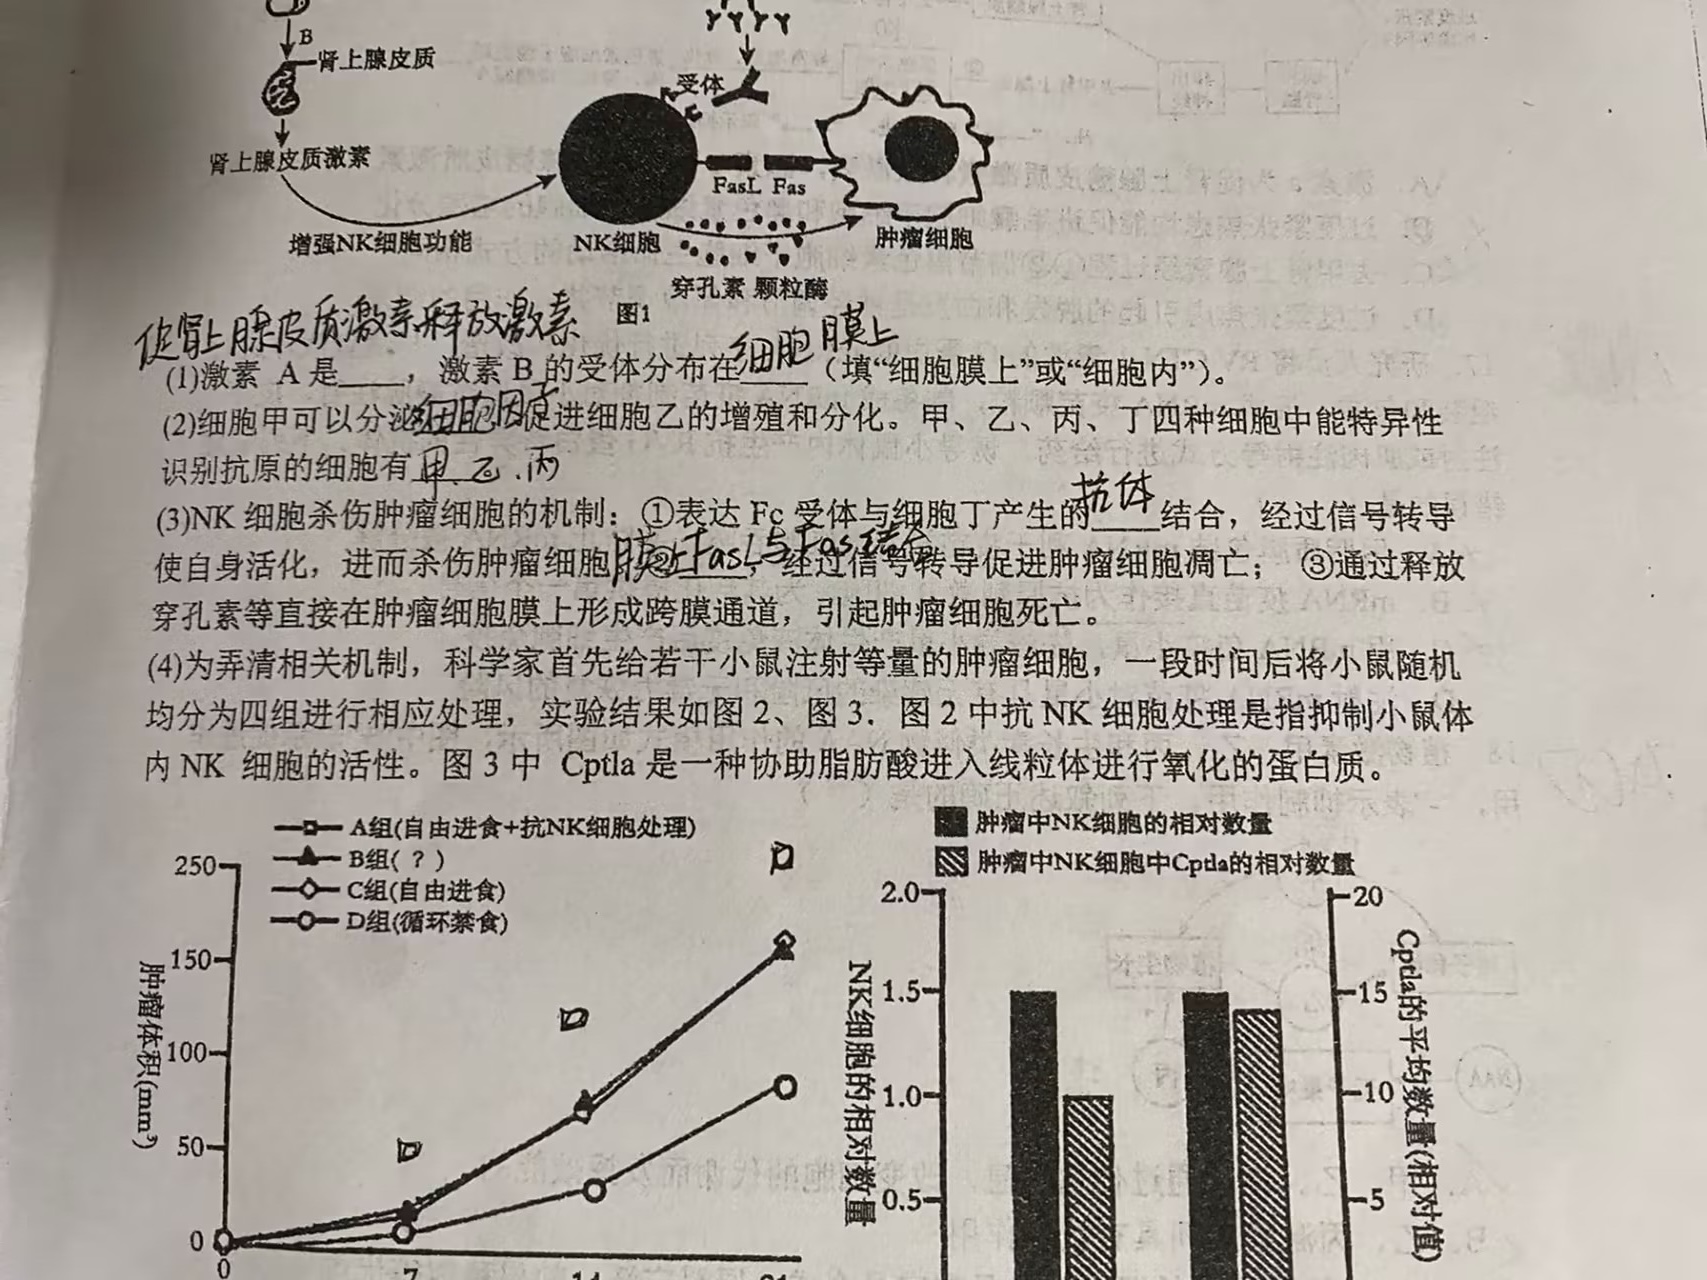 B
肾上腺皮质
受体
肾上腺皮质激素
FasL Fas
增强NK细胞功能
NK细胞
肿瘤细胞
穿孔素 颗粒酶
图1
促肾上腺皮质激素释放激素
细胞膜上
(1)激素 A 是____，激素 B 的受体分布在____（填“细胞膜上”或“细胞内”）。
(2)细胞甲可以分泌细胞因子促进细胞乙的增殖和分化。甲、乙、丙、丁四种细胞中能特异性
识别抗原的细胞有甲.乙.丙
抗体
(3)NK 细胞杀伤肿瘤细胞的机制：①表达 Fc 受体与细胞丁产生的____结合，经过信号转导
膜上FasL与Fas结合
使自身活化，进而杀伤肿瘤细胞；②____，经过信号转导促进肿瘤细胞凋亡； ③通过释放
穿孔素等直接在肿瘤细胞膜上形成跨膜通道，引起肿瘤细胞死亡。
(4)为弄清相关机制，科学家首先给若干小鼠注射等量的肿瘤细胞，一段时间后将小鼠随机
均分为四组进行相应处理，实验结果如图 2、图 3．图 2 中抗 NK 细胞处理是指抑制小鼠体
内 NK 细胞的活性。图 3 中 Cptla 是一种协助脂肪酸进入线粒体进行氧化的蛋白质。
A组(自由进食+抗NK细胞处理)
B组(？)
C组(自由进食)
D组(循环禁食)
肿瘤体积(mm³)
250
150
100
50
0
0
7
14
21
肿瘤中NK细胞的相对数量
肿瘤中NK细胞中Cptla的相对数量
NK细胞的相对数量
2.0
1.5
1.0
0.5
20
15
10
5
Cptla的平均数量(相对值)